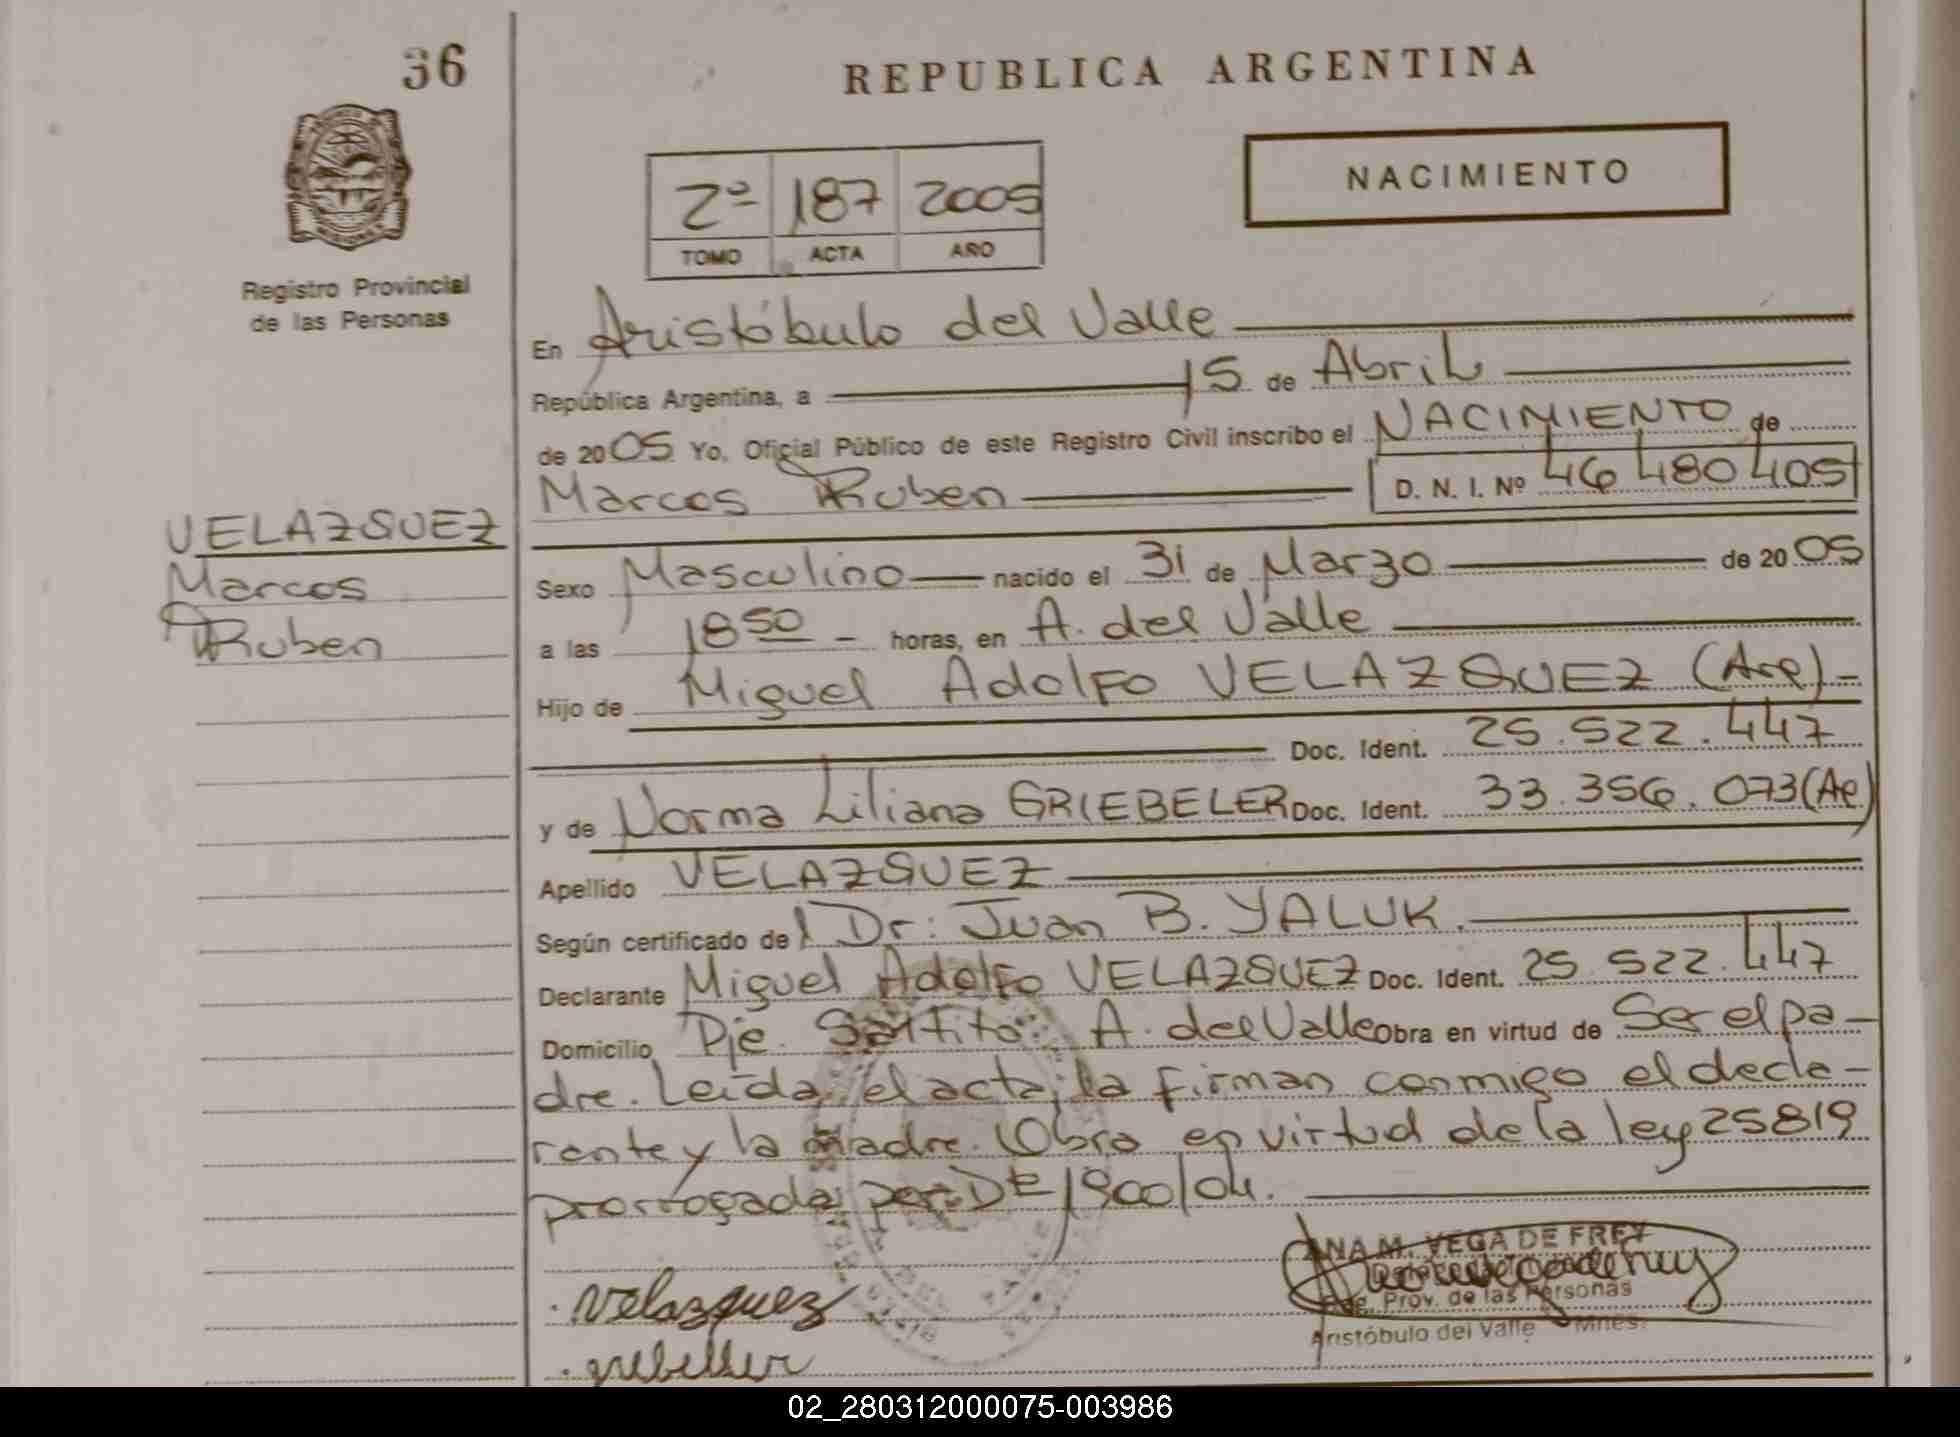 36
REPUBLICA ARGENTINA
NACIMIENTO
2º 187 2005
TOMO ACTA AÑO
Registro Provincial
de las Personas
En Aristóbulo del Valle
República Argentina, a 15 de Abril
de 2005 Yo, Oficial Público de este Registro Civil inscribo el NACIMIENTO de
Marcos Ruben D. N. I. Nº 46 480 405
VELAZQUEZ
Marcos
Ruben
Sexo Masculino nacido el 31 de Marzo de 2005
a las 18 50 - horas, en A. del Valle
Hijo de Miguel Adolfo VELAZQUEZ (Arg)-
Doc. Ident. 25.522.447
y de Norma Liliana GRIEBELER Doc. Ident. 33.356.073 (Ae)
Apellido VELAZQUEZ
Según certificado del Dr: Juan B. YALUK.
Declarante Miguel Adolfo VELAZQUEZ Doc. Ident. 25.522.447
Domicilio Pje. Saltito. A. del Valle Obra en virtud de Ser el pa-
dre. Leída el acta, la firman conmigo el decla-
rante y la madre. Obra en virtud de la ley 25819
prorrogada por Dto 1900/04.
ANA M. VEGA DE FREY
Prov. de las Personas
Aristóbulo del Valle - Mnes.
Velazquez
02_280312000075-003986